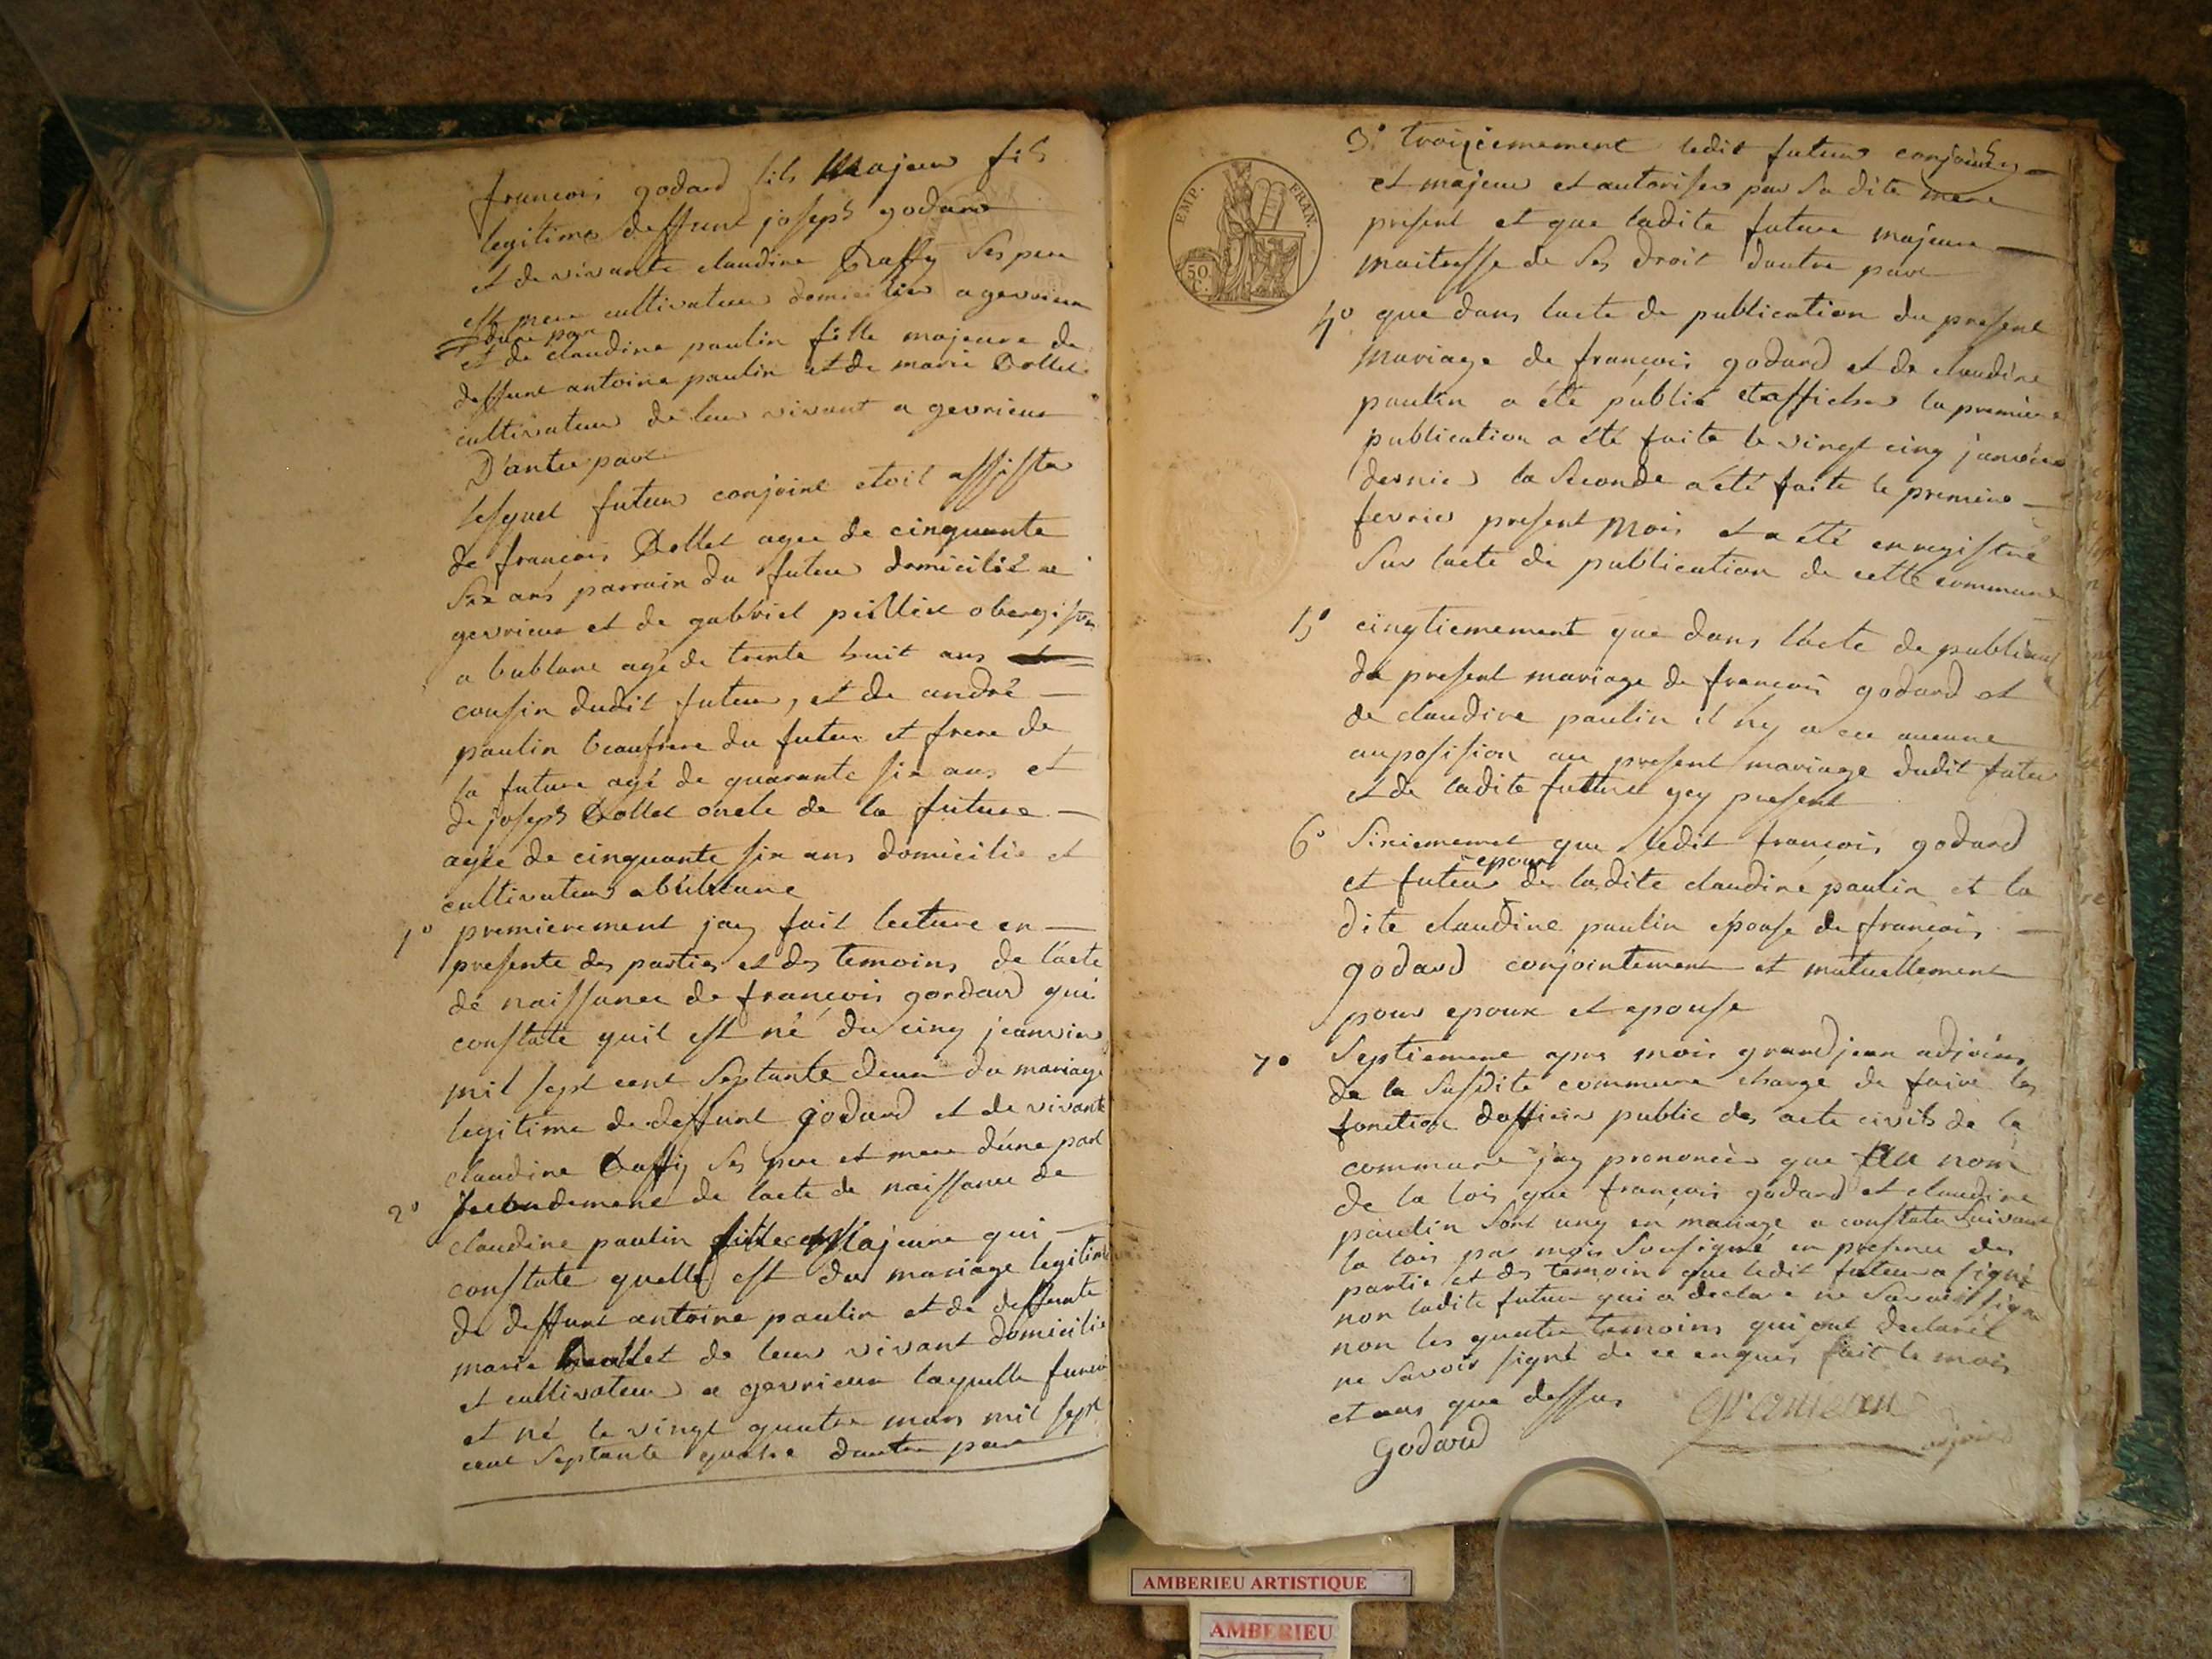 francois godard fils Majeur fils
legitime deffunt joseph godard
et de vivante claudine Ses pere
et mere cultivateur domicilier a gevrieux
dune part
et de claudine paulin fille majeure de
deffunt antoine paulin et de marie Dollet
cultivateur de leur vivant a gevrieux
D'autre part
lesquel futur conjoint etoit assister
de francois Dollet agee de cinquante
six ans parrain du futur domicilié a
gevrieux et de gabriel obergiste
a bublane agé de trente huit ans
cousin dudit futur, et de andré
paulin beaufrere du futur et frere de
la future agé de quarante six ans et
de joseph Dollet oncle de la future
agée de cinquante six ans domicilié et
cultivateur a bublane
1° premierement jay fait lecture en
presente des parties et des temoins de lacte
de naissance de francois gordard qui
constate quil est né du cinq jeanvier
mil sept cent septante deux du mariage
legitime de deffunt godard et de vivante
claudine ses pere et mere dune part
2° secondement de lacte de naissance de
claudine paulin fille Majeure qui
constate quelle est du mariage legitime
de deffunt antoine paulin et de deffunte
marie de leur vivant domicilié
et cultivateur a gevrieux laquelle future
et né le vingt quatre mars mil sept
cent septante quatre dautre part
3° troiziemement ledit futur conjoint
et majeur et autoriser par sa dite mere
present et que ladite future majeure
maitresse de ses droit dautre part
4° que dans lacte de publication du present
mariage de francois godard et de claudine
paulin a été publié et afficher la premiere
publication a été faite le vingt cinq janvier
dernier la seconde a été faite le premiere
fevrier present mois et a été enregistré
sur lacte de publication de cette commune
5° cinqtiemement que dans lacte de publication
du present mariage de francois godard et
de claudine paulin il ny a eu aucune
auposision au present mariage dudit futur
et de ladite future present
6° Sixiemement que ledit francois godard
epoux
et futeur de ladite claudine paulin et la
dite claudine paulin epouse de francois
godard conjointement et mutuellement
pour epoux et epouse
7° Septiemement apres mois grandjean adjoint
de la susdite commune charge de faire les
fonction dofficier public des acte civils de la
commune jay prononcèr que Au nom
de la lois que francois godard et claudine
paulin sont uny en mariage a constater suivant
la lois par mois sousigné en presence des
partie et des temoin que ledit futeur a signé
non ladite future qui a declare ne savoir signe
non les quatre temoins qui ont declarét
ne savoir signé de ce enquis fait le mois
et ans que dessus
Godard
adjoint
EMP. FRAN.
50 C.
AMBERIEU ARTISTIQUE
AMBERIEU